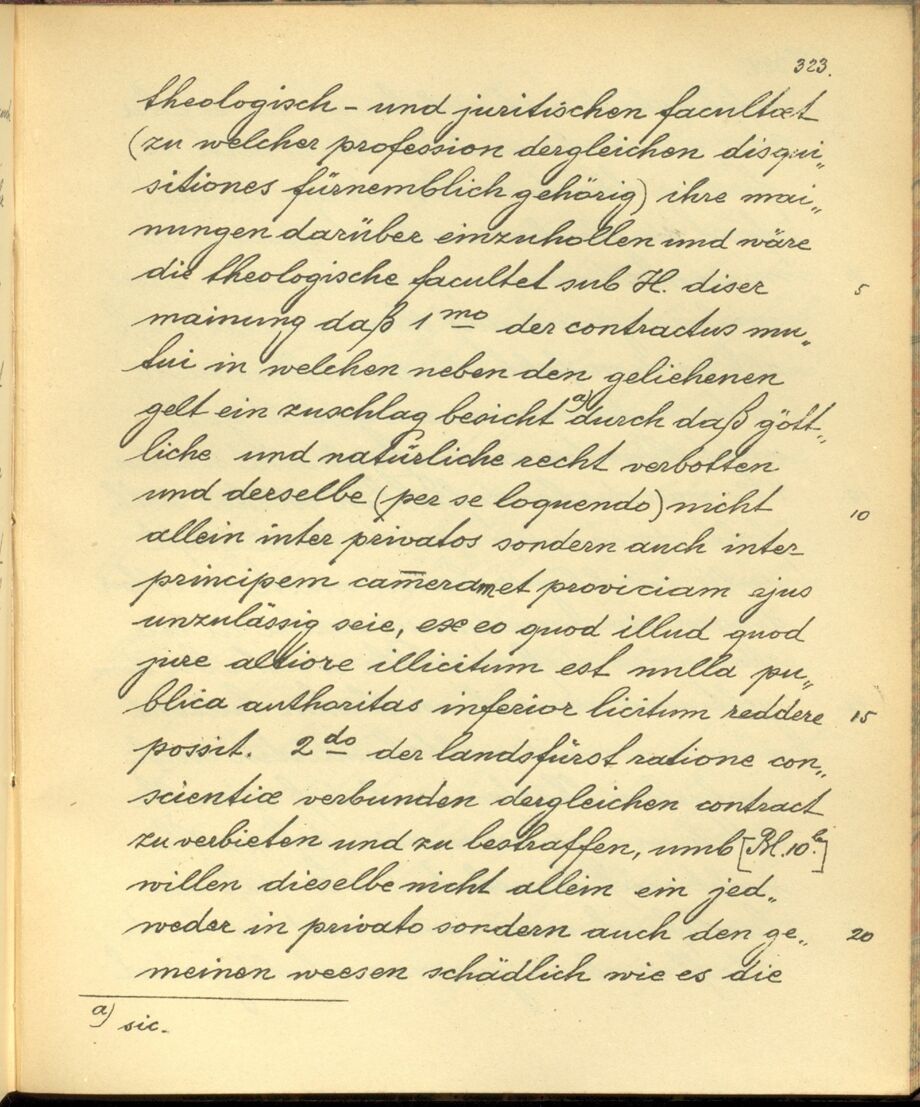 323.
theologisch – und juritischen facultæt
(zu welcher profession dergleichen disqui„
sitiones fürnemblich gehörig) ihre mai„
nungen darüber einzuhollen und wäre
die theologische facultet sub H. diser
5
mainung daß 1mo der contractus mu„
tui in welchen neben den geliehenen
gelt ein zuschlag besicht a) durch daß gött„
liche und natürliche recht verbotten
und derselbe (per se loquendo) nicht
10
allein inter privatos sondern auch inter
principem cameram et proviciam ejus
unzulässig seie, ex eo quod illud quod
jure altiore illicitum est nulla pu„
blica authoritas inferior licitum reddere
15
possit. 2do der landsfürst ratione con„
scientiæ verbunden dergleichen contract
zu verbieten und zu bestraffen, umb [Bl. 10b.]
willen dieselbe nicht allein ein jed„
weder in privato sondern auch den ge„
20
meinen weesen schädlich wie es die
a) sic.